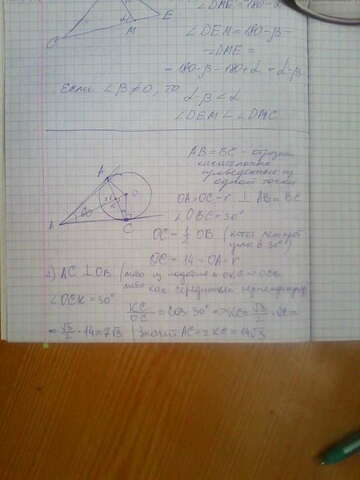 ∠DME = 180-α
∠DEM = 180-β-
-∠DME =
= 180-β-180+α = α-β
Если ∠β≠0, то
α-β < α
∠DEM < ∠DMC
AB=BC - отрезки
касательных
проведённые из
одной точки
OA=OC=r ⊥ AB=BC
∠OBC=30°
OC = 1/2 OB (катет лежащий
угла в 30°)
OC = 14 = OA = r
2) AC ⊥ OB (либо из подобия
либо как серединный перпендикуляр
∠OCK = 30°
KC/OC = cos 30° => KC = √3/2 · OC =
= √3/2 · 14 = 7√3 | Значит AC = 2KC = 14√3